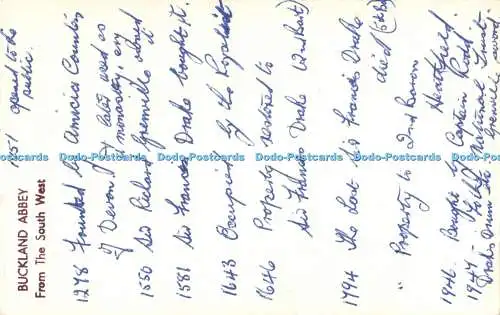 BUCKLAND ABBEY
From The South West
1278 Founded by Amicia Countess
of Devon
later used as
monastery,
1550 Sir Richard Grenville
it
1581 Sir Francis Drake bought it.
1643 Occupied by the Royalist
1646 Property restored to
Sir Francis Drake (2nd Bart)
1794 The Last Sir Francis Drake
died (5th Bt)
" Property to 2nd Baron
Heathfield.
1946. Bought by Captain Rodd
1947 - to the National Trust
Drake's Drum
1951 opened to the
public.
Dodo-Postcards Dodo-Postcards Dodo-Postcards Dodo-Postcards Dodo-Postcards Dodo-Postcards